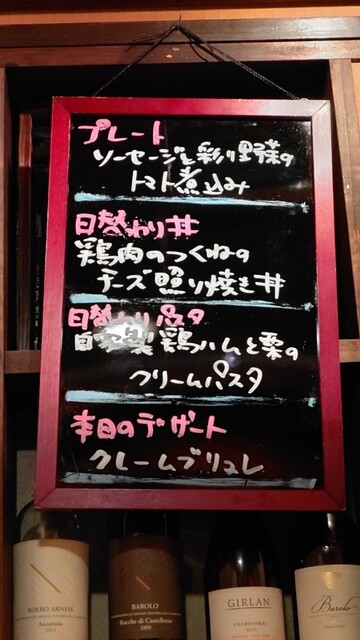 プレート
ソーセージと彩り野菜の
トマト煮込み
日替わり丼
鶏肉のつくねの
チーズ照り焼き丼
日替わりパスタ
自家製鶏ハムと栗の
クリームパスタ
本日のデザート
クレームブリュレ
ROERO ARNEIS
BAROLO
Bacche di Castellero
GIRLAN
CHARDONNAY
Barolo